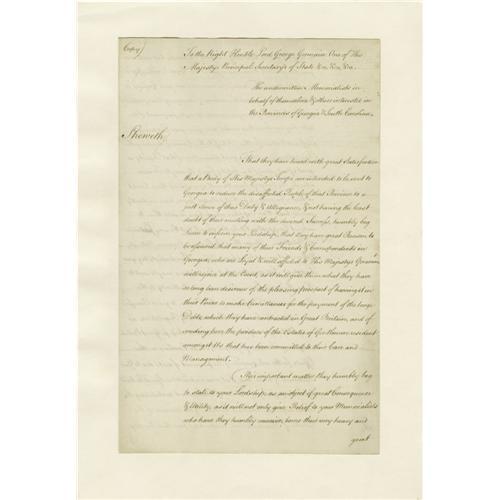 (Copy)
To the Right Honble Lord George Germain One of His
Majestys Principal Secretarys of State &c &c &c
The underwritten Memorialists in
behalf of themselves & others interested in
the Provinces of Georgia & South Carolina
Sheweth
That they have heard with great Satisfaction
that a Body of His Majestys Troops are intended to be sent to
Georgia to reduce the disaffected People of that Province to a
just sense of their Duty & Allegiance, & not having the least
doubt of their meeting with the desired Success, humbly beg
leave to inform your Lordship, that they have great Reason to
be assured that many of their Friends & Correspondents in
Georgia, who are Loyal & well affected to His Majestys Government
will rejoice at the Event, as it will give them what they have
so long been desirous of the pleasing prospect of having it in
their Power to make Remittances for the payment of the large
Debts which they have contracted in Great Britain, and of
rendering here the produce of the Estates of Gentlemen resident
amongst us that has been committed to their Care and
Management.
This important matter they humbly beg
to state to your Lordship, as an object of great Consequence
& Utility, as it will not only give Relief to your Memorialists
who have they humbly conceive, borne their very heavy and
great